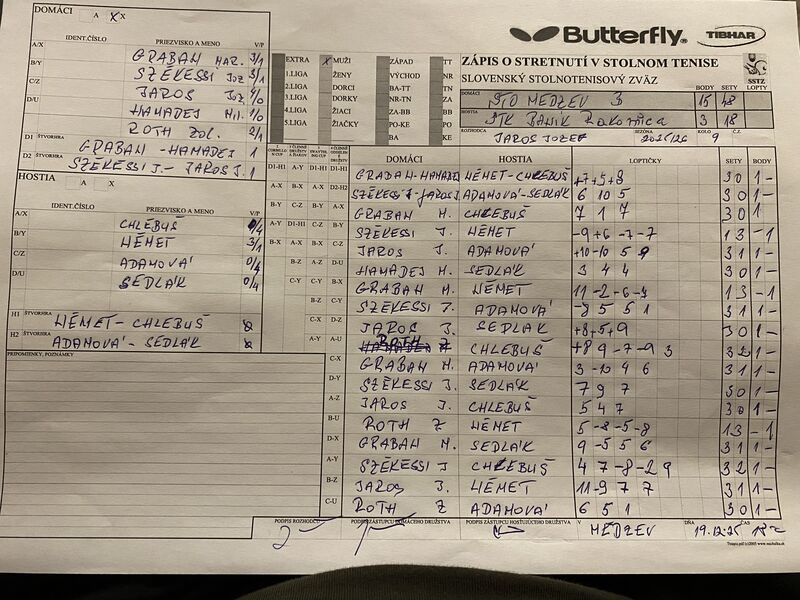 DOMÁCI A X
Butterfly TIBHAR
IDENT.ČÍSLO PRIEZVISKO A MENO V/P
A/X GRABAN MAR. 3/1
B/Y SZÉKESSI JOZ 3/1
C/Z JAROS JOZ 4/0
D/U HAMADEJ MIL. 1/0
ROTH ZOL. 2/1
EXTRA X MUŽI ZÁPAD TT
1.LIGA ŽENY VÝCHOD NR
2.LIGA DORCI BA-TT TN
3.LIGA DORKY NR-TN ZA
4.LIGA ŽIACI ZA-BB BB
5.LIGA ŽIAČKY PO-KE PO
BA KE
ZÁPIS O STRETNUTÍ V STOLNOM TENISE
SLOVENSKÝ STOLNOTENISOVÝ ZVÄZ
SSTZ
BODY SETY LOPTY
DOMÁCI STO MEDZEV B 15 48
HOSTIA STK BANÍK Rakovnica 3 18
ROZHODCA JAROS JOZEF SEZÓNA 2025/26 KOLO 9 Č.Z.
D1 ŠTVORHRA GRABAN - HAMADEJ 1
D2 ŠTVORHRA SZÉKESSI J. - JAROS J. 1
HOSTIA A X
IDENT.ČÍSLO PRIEZVISKO A MENO V/P
A/X CHLEBUŠ 0/4
B/Y NÉMET 3/1
C/Z ADAMOVÁ 0/4
D/U SEDLÁK 0/4
H1 ŠTVORHRA NÉMET - CHLEBUŠ
H2 ŠTVORHRA ADAMOVÁ - SEDLÁK
PRIPOMIENKY, POZNÁMKY
DOMÁCI HOSTIA LOPTIČKY SETY BODY
D1-H1 A-Y D1-H1 D1-H1 GRABAN-HAMADEJ NÉMET-CHLEBUŠ +7 +5 +8 3 0 1 -
A-X B-X A-X D2-H2 SZÉKESSI J-JAROS J ADAMOVÁ-SEDLÁK 6 10 5 3 0 1 -
B-Y C-Z B-Y A-X GRABAN M. CHLEBUŠ 7 1 7 3 0 1
A-Y D1-H1 C-Z B-Y SZÉKESSI J. NÉMET -9 +6 -7 -7 1 3 - 1
B-X A-X B-X C-Z JAROS J. ADAMOVÁ +10 -10 5 9 3 1 1 -
B-Z A-Z D-U HAMADEJ M. SEDLÁK 3 4 4 3 0 1 -
C-Y C-Y B-X GRABAN M. NÉMET 11 -2 -6 -7 1 3 - 1
B-Z C-Y SZÉKESSI J. ADAMOVÁ -8 5 5 1 3 1 1 -
C-X D-Z JAROS J. SEDLÁK +8 +5 +9 3 0 1 -
A-Y A-U ROTH Z CHLEBUŠ +8 9 -7 -9 3 3 2 1 -
C-X GRABAN M. ADAMOVÁ 3 -10 9 6 3 1 1 -
D-Y SZÉKESSI J. SEDLÁK 7 9 7 3 0 1 -
A-Z JAROS J. CHLEBUŠ 5 4 7 3 0 1 -
B-U ROTH Z NÉMET 5 -8 -5 -8 1 3 - 1
D-X GRABAN M. SEDLÁK 9 -5 5 6 3 1 1 -
A-Y SZÉKESSI J CHLEBUŠ 4 7 -8 -2 9 3 2 1 -
B-Z JAROS J. NÉMET 11 -9 7 7 3 1 1 -
C-U ROTH Z ADAMOVÁ 6 5 1 3 0 1 -
PODPIS ROZHODCU PODPIS ZÁSTUPCU DOMÁCEHO DRUŽSTVA PODPIS ZÁSTUPCU HOSŤUJÚCEHO DRUŽSTVA V MEDZEV DŇA 19.12.25